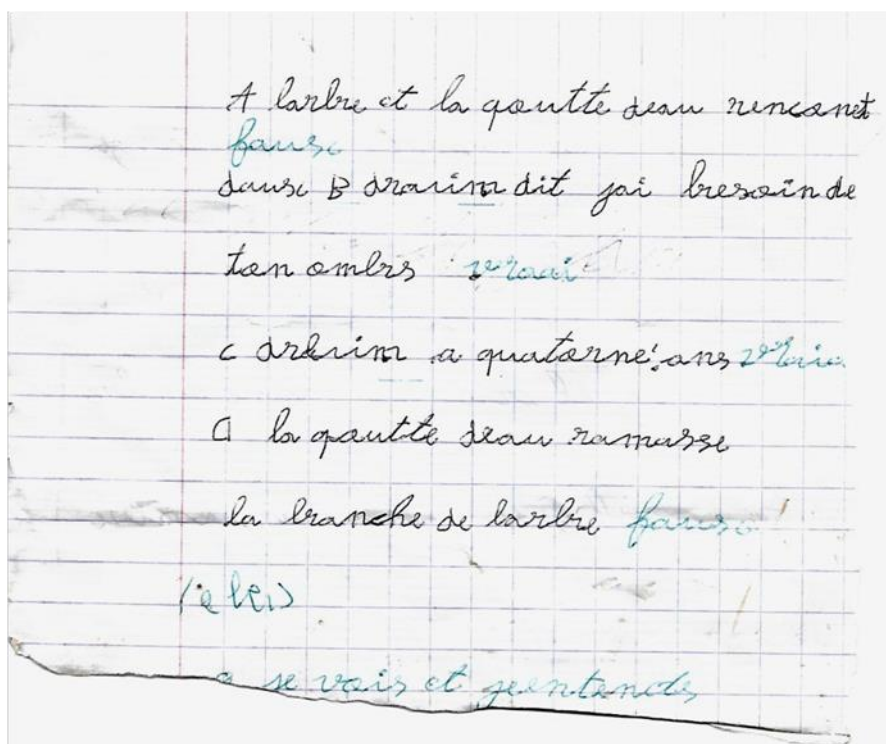 A larbre et la goutte deau rencanet
fausc
dausc B drauim dit jai bresoin de
ton ombrs vraai
c ardruim a quatorne ans
a la goutte deau ramasse
la branche de larbre fausc
a se vois et jeentends